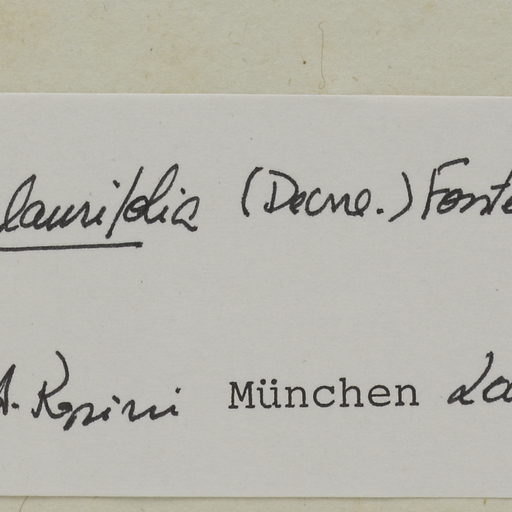 laurifolia (Decne.) Fonte
A. Rapini München 200